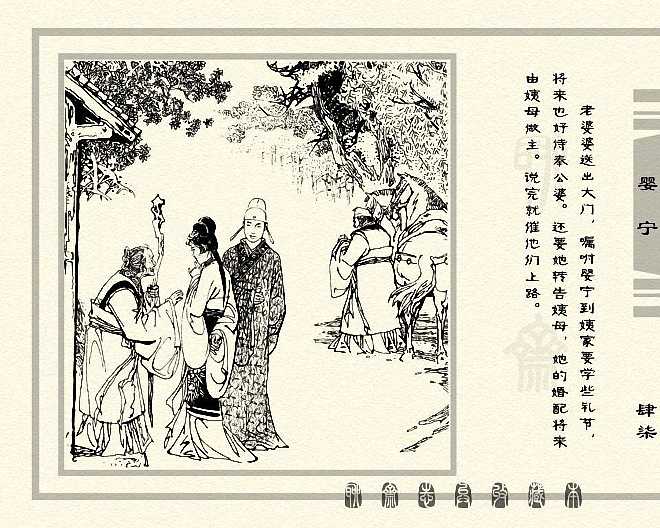 老婆婆送出大门，嘱咐婴宁到姨家要学些礼节，
将来也好侍奉公婆。还要她转告姨母，她的婚配将来
由姨母做主。说完就催他们上路。
婴宁
肆柒
聊斋志异收藏本